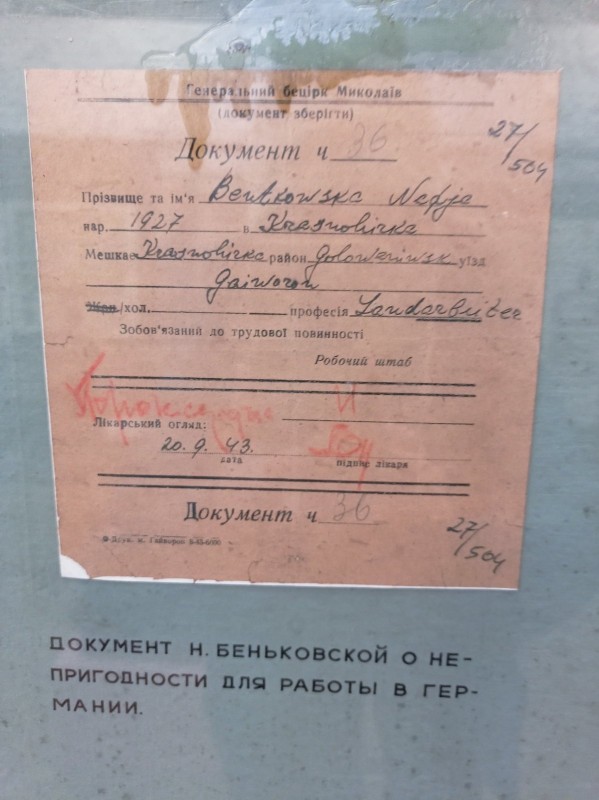 Генеральний бецірк Миколаїв
(документ зберігти)
Документ ч 36 27/504
Прізвище та ім'я Benkowska Nadja
нар. 1927 в Krasnohirka
Мешкає Krasnohirka район Golowaniwsk уїзд
Gaiworon
Жон./хол. професія Landarbeiter
Зобов'язаний до трудової повинності
Робочий штаб
Лікарський огляд:
20. 9. 43.
дата підпис лікаря
Документ ч 36 27/504
ДОКУМЕНТ Н. БЕНЬКОВСКОЙ О НЕ-
ПРИГОДНОСТИ ДЛЯ РАБОТЫ В ГЕР-
МАНИИ.